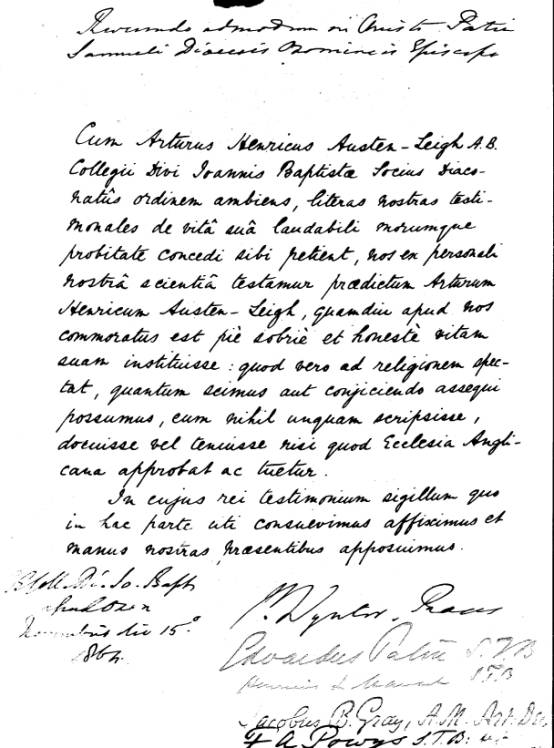 Reverendo admodum in Christo Patri
Samueli Diocesis Oxoniencis Episcopo
Cum Arturus Henricus Austen-Leigh A.B.
Collegii Divi Joannis Baptistæ Socius Diaco-
natûs ordinem ambiens, literas nostras testi-
monales de vitâ suâ laudabili morumque
probitate concedi sibi petient, nos en personali
nostrâ scientiâ testamur prædictum Arturum
Henricum Austen-Leigh, quamdiu apud nos
commoratus est piè sobriè et honestè vitam
suam instituisse: quod vero ad religionem spec-
tat, quantum scimus aut conjiciendo assequi
possumus, eum nihil unquam scripsisse,
docuisse vel tenuisse nisi quod Ecclesia Angli-
cana approbat ac tuetur.
In cujus rei testimonium sigillum quo
in hac parte uti consuevimus affiximus et
manus nostras præsentibus apposuimus.
Coll. Di. Jo. Bapt.
apud Oxon
die 15.º
1864.
P. Wynter. Praes
Edvardus S.T.B
S.T.B
Jacobus B. Gray, A.M. Art. Dec.
F A Powys S.T.B.